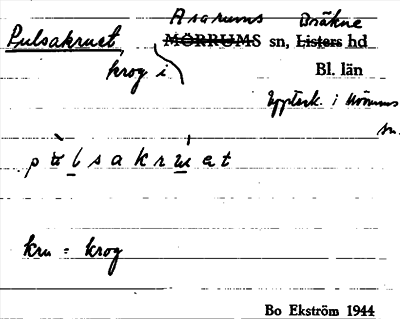 Asarums Bräkne
Pulsakruet, MÖRRUMS sn, Listers hd
krog i Bl. län
Uppteck. i Mörrums
sn.
kru = krog
Bo Ekström 1944